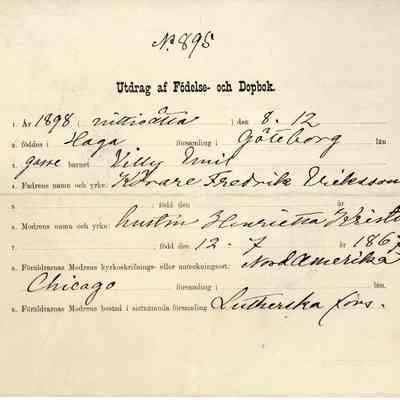 No 895
Utdrag af Födelse- och Dopbok.
1. År 1898 (nittioåtta) den 8. 12
2. föddes i Haga församling i Göteborg län
3. gosse barnet Villy Emil
4. Fadrens namn och yrke: Körare Fredrik Eriksson
5. född den år
6. Modrens namn och yrke: hustru Henrietta Kristi
7. född den 12. 7 år 1867
8. Föräldrarnas Modrens kyrkoskrifnings- eller mantalsskrifningsort: Nord Amerika
Chicago församling i län.
9. Föräldrarnas Modrens bostad i sistnämnda församling Lutherska förs.